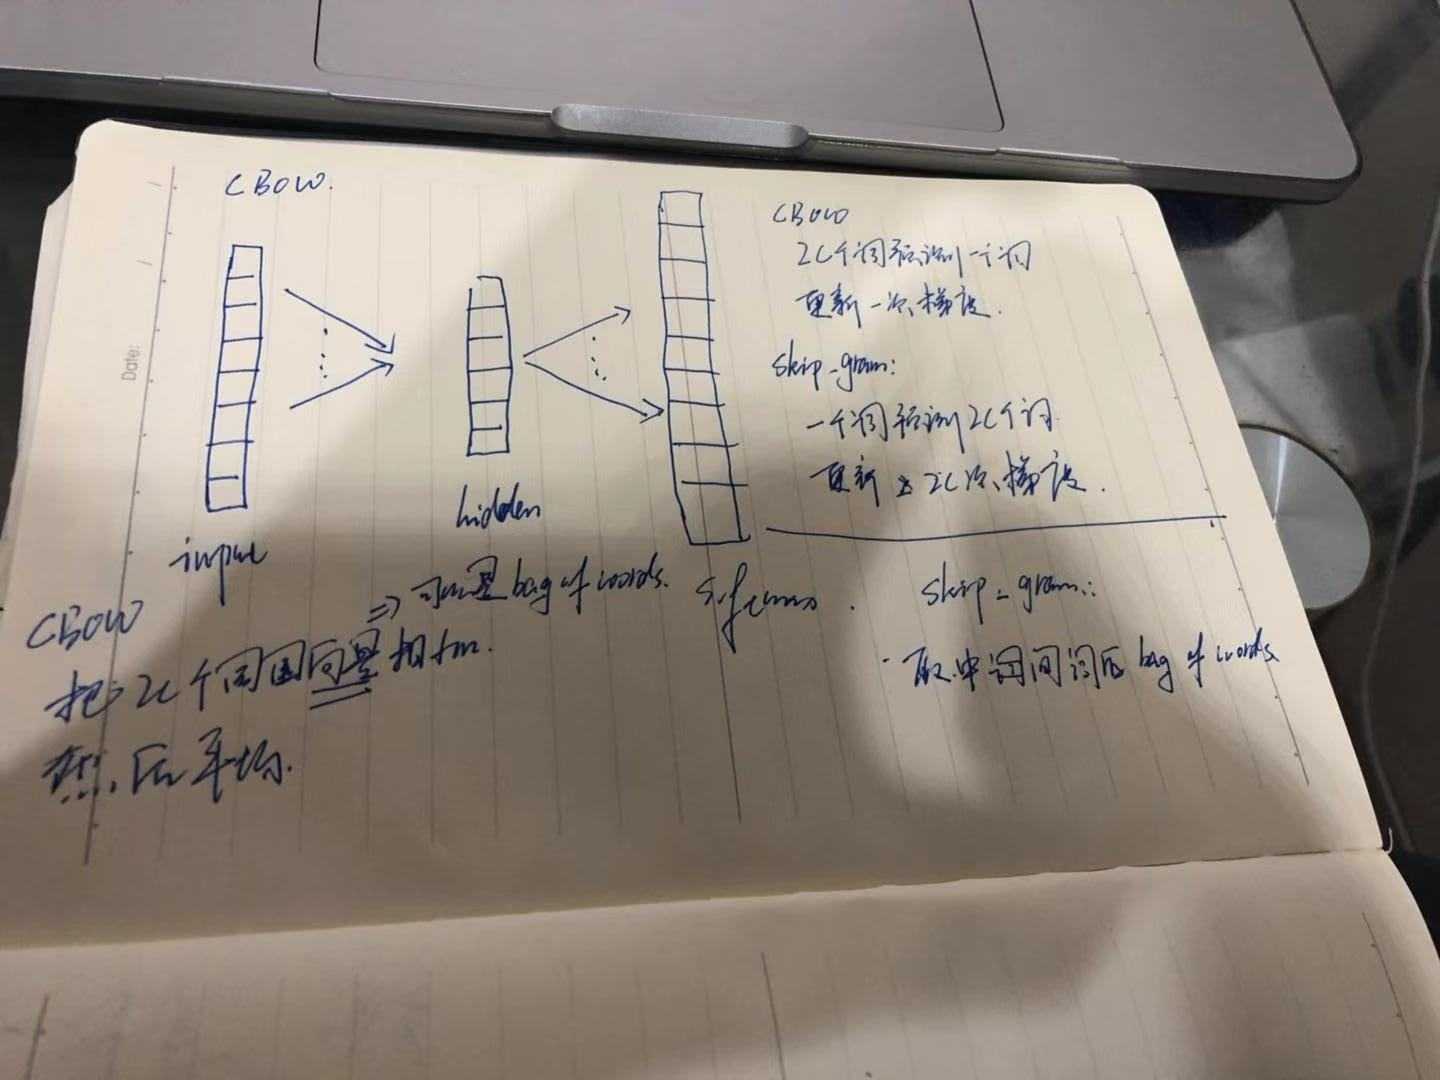 CBOW.
Date:
input
hidden
softmax.
CBOW
2C个词预测一个词
更新一次梯度.
skip-gram:
一个词预测2C个词
更新 2C次梯度.
CBOW
把2C个周围向量相加.
然后平均.
⇒ 可以是 bag of words.
skip-gram:
取中间词 bag of words